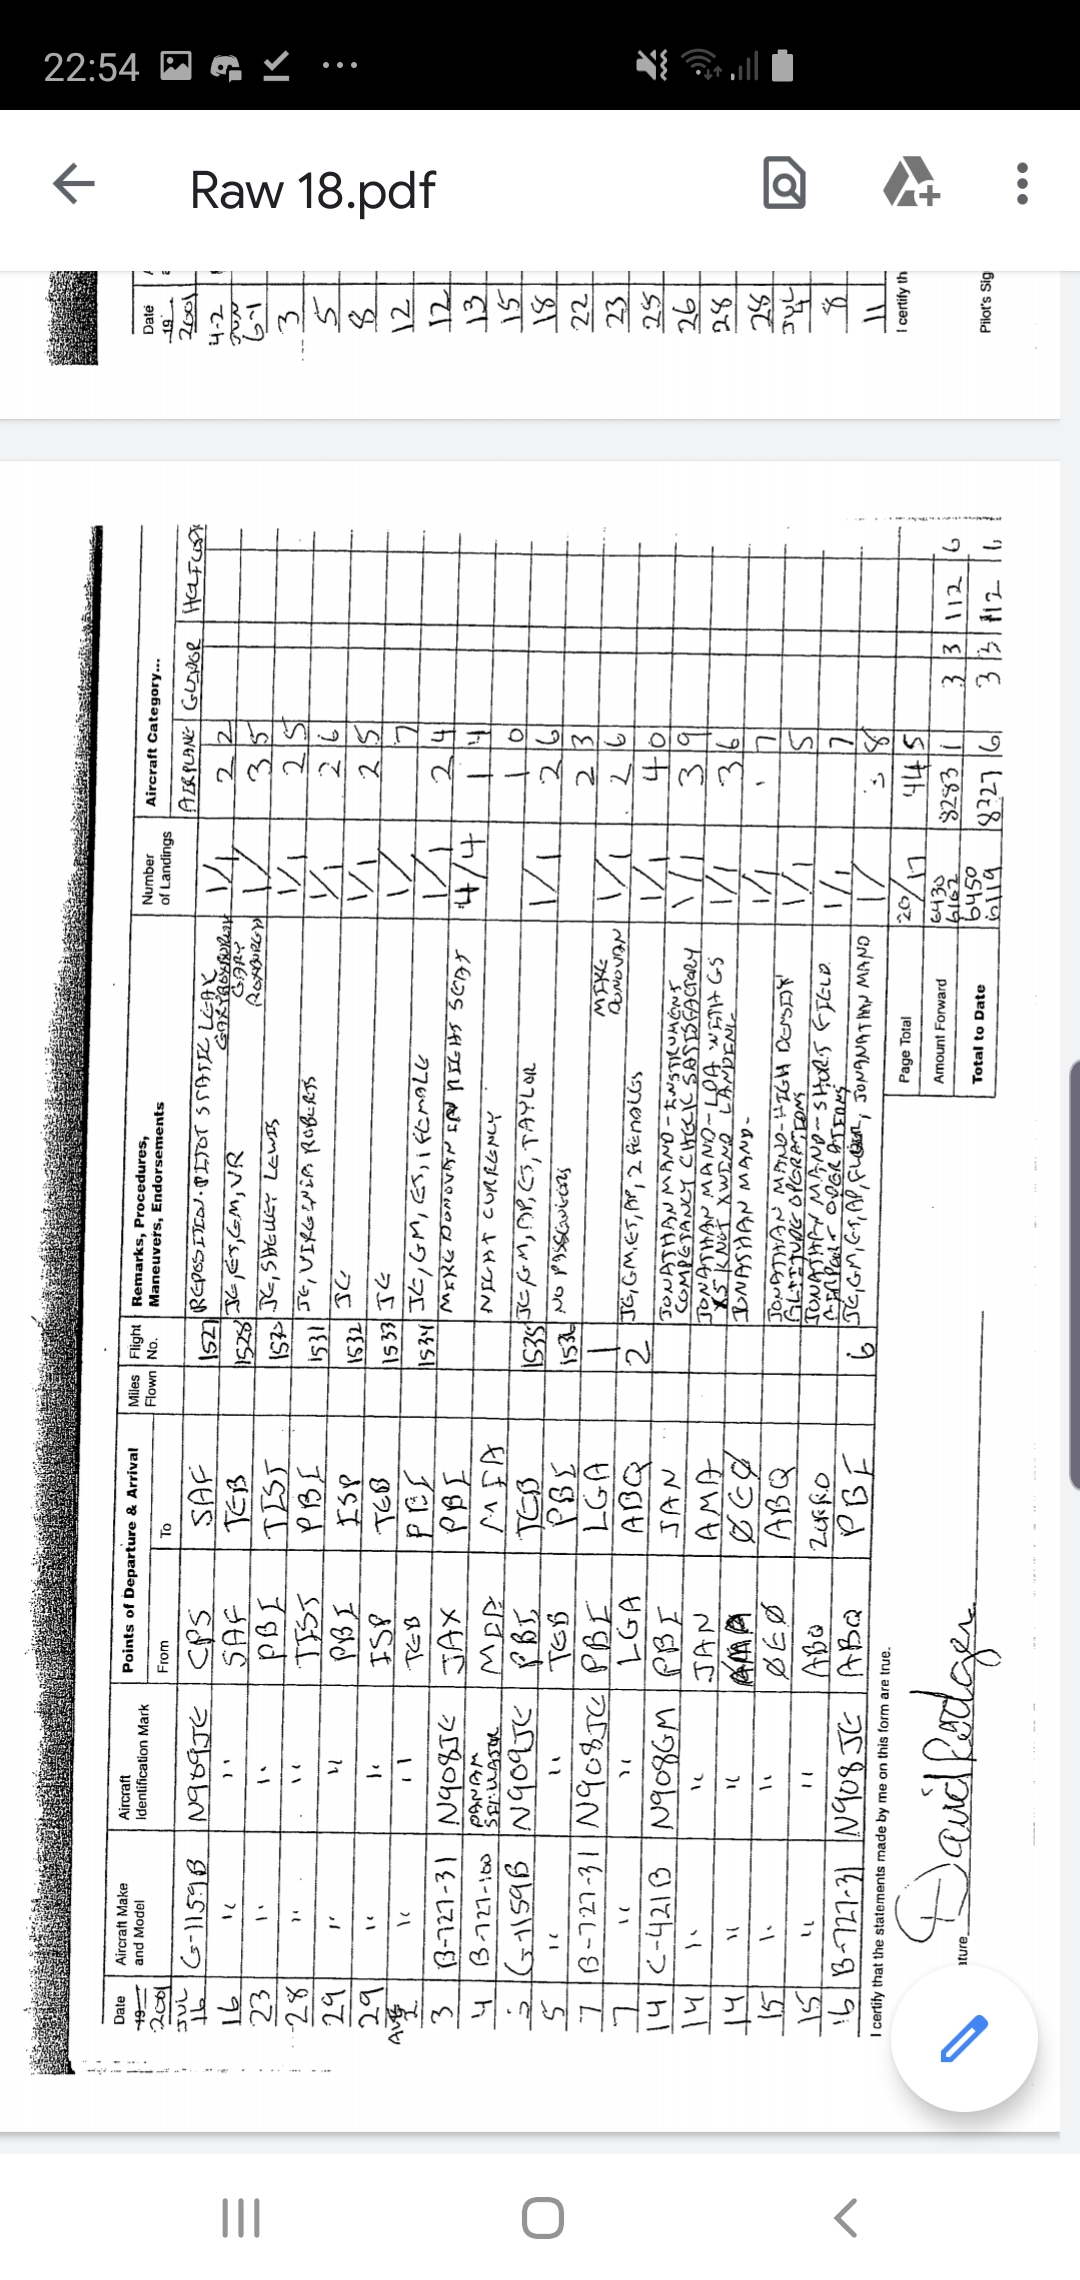 22:54
Raw 18.pdf
Date
19
2001
4-2
JUN
6-1
3
5
8
12
12
13
15
18
22
23
25
26
28
28
JUL
4
8
11
I certify th
Pilot's Sig
Date Aircraft Make and Model Aircraft Identification Mark Points of Departure & Arrival Miles Flown Flight No. Remarks, Procedures, Maneuvers, Endorsements Number of Landings Aircraft Category...
19 2001 From To AIRPLANE GLIDER HELICOPT
JUL 16 G-1159B N909JE CPS SAF 1527 REPOSITION-PITOT STATIC LEAK GARY ROXBURGH 1/1 2 2
16 " " SAF TEB 1528 JE, ES, GM, VR GARY ROXBURGH 1/ 3 5
23 " " PBI TIST 1530 JE, SHELLEY LEWIS 1/1 2 5
28 " " TIST PBI 1531 JE, VIRGINIA ROBERTS 1/1 2 6
29 " " PBI ISP 1532 JE 1/1 2 5
29 " " ISP TEB 1533 JE 1/ 7
AUG 2 " " TEB PBI 1534 JE, GM, ES, 1 FEMALE 1/1 2 4
3 B-727-31 N908JE JAX PBI MIKE DONOVAN IN RIGHT SEAT 4/4 1 4
4 B-727-100 PANAM SIMULATOR MIA MIA NIGHT CURRENCY 1 0
5 G-1159B N909JE PBI TEB 1535 JE, GM, AP, ES, TAYLOR 1/1 2 6
5 " " TEB PBI 1536 NO PASSENGERS 2 3
7 B-727-31 N908JE PBI LGA 1 MIKE DONOVAN 1/1 2 6
7 " " LGA ABQ 2 JE, GM, ES, AP, 2 FEMALES 1/1 4 0
14 C-421B N908GM PBI JAN JONATHAN MANO-INSTRUMENT COMPETANCY CHECK SATISFACTORY 1/1 3 9
14 " " JAN AMA JONATHAN MANO-LOA WITH GS X5 KNOT XWIND LANDING 1/1 3 6
14 " " AMA ØEØ JONATHAN MANO- 1/1 7
15 " " ØEØ ABQ JONATHAN MANO-HIGH DENSITY ALTITUDE OPERATIONS 1/1 5
15 " " ABQ ZORRO JONATHAN MANO-SHORT FIELD AIRPORT OPERATIONS 1/1 7
16 B-727-31 N908JE ABQ PBI 6 JE, GM, ES, AP, JONANATHAN MANO 1/ 3 8
I certify that the statements made by me on this form are true. Page Total 20/17 44 5
Amount Forward 6430 6102 8283 1 3 3 112 6
ature David Rodgers Total to Date 6450 6119 8327 6 3 3 112 6